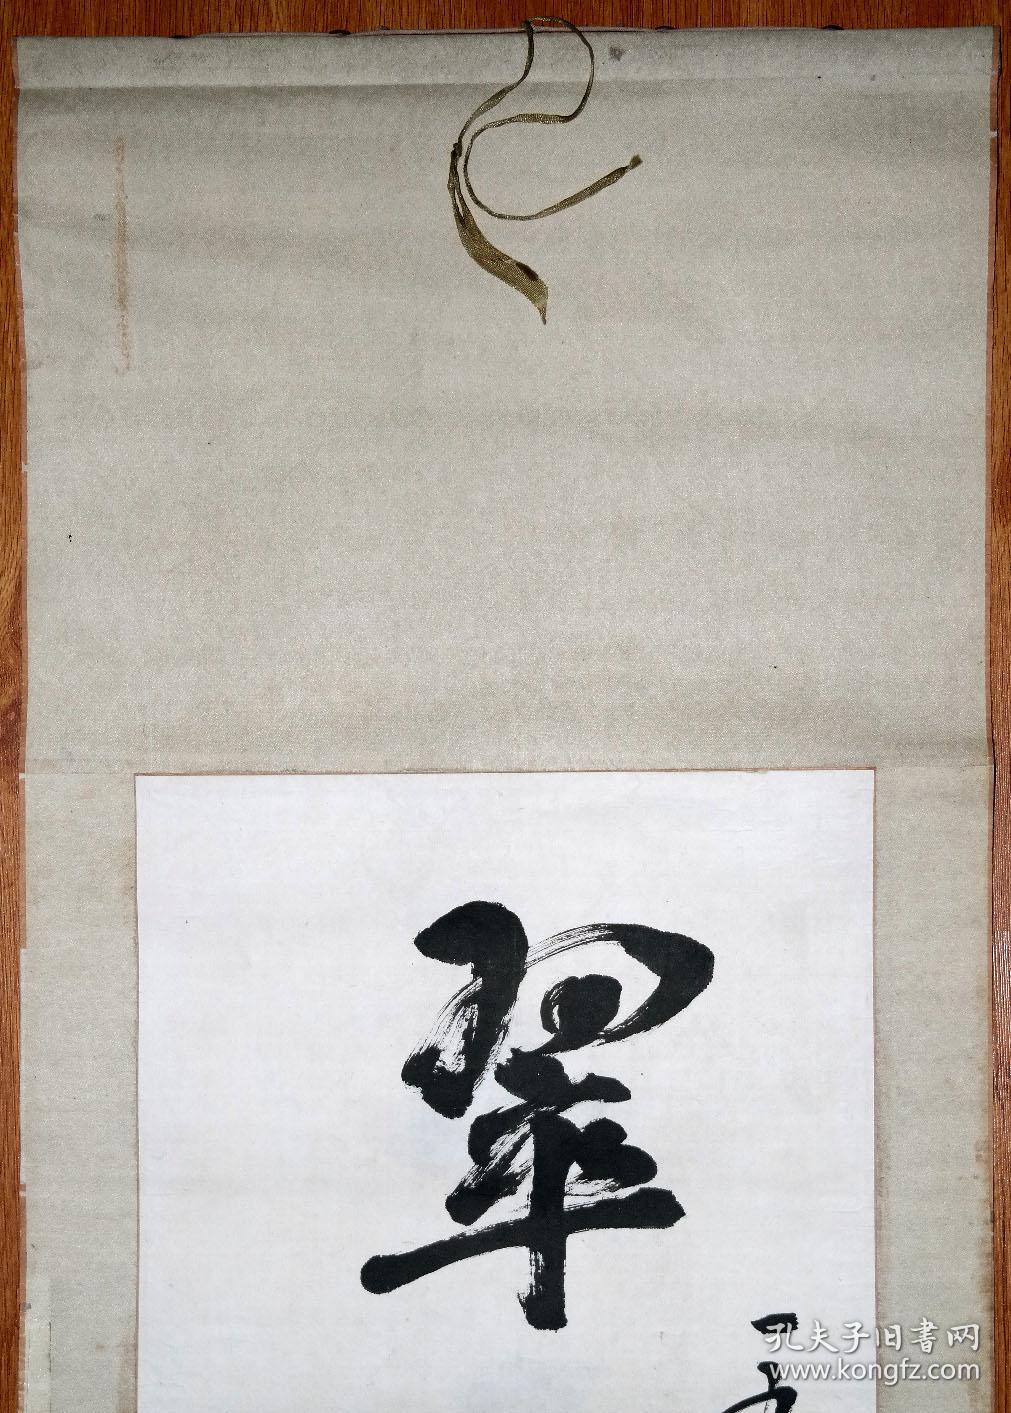 翠
孔夫子旧書网
www.kongfz.com